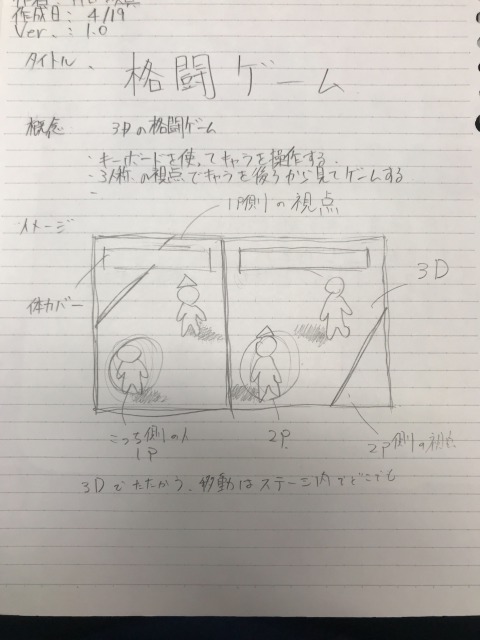 作成日: 4/19
Ver.: 1.0
タイトル、 格闘ゲーム
概念 3Dの格闘ゲーム
・キーボードを使ってキャラを操作する.
・3人称の視点でキャラを後ろから見てゲームする
・
イメージ
1P側の視点
3D
体力バー
こっち側の人
1P
2P.
2P側の視点
3Dでたたかう. 移動はステージ内でどこでも